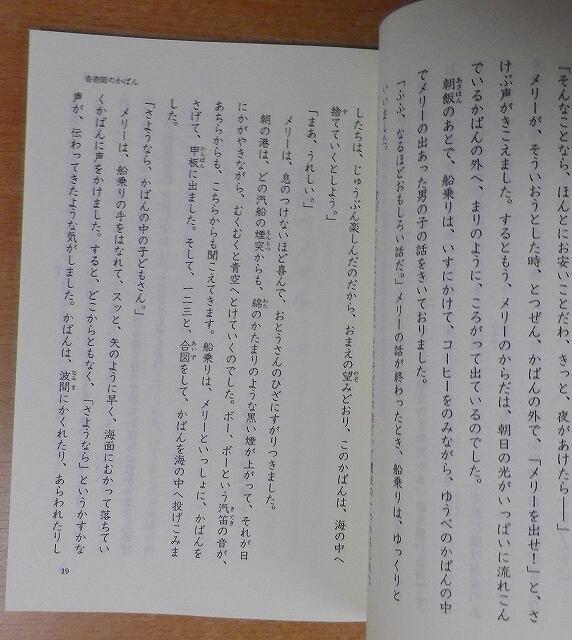 「そんなことなら、ほんとにお安いことだわ、きっと、夜があけたら――」
メリーが、そういおうとした時、とつぜん、かばんの外で、「メリーを出せ!」と、さ
けぶ声がきこえました。するともう、メリーのからだは、朝日の光がいっぱいに流れこん
でいるかばんの外へ、まりのように、ころがって出ているのでした。
朝飯のあとで、船乗りは、いすにかけて、コーヒーをのみながら、ゆうべのかばんの中
でメリーの出あった男の子の話をきいておりました。
「ふふ、なるほどおもしろい話だ。」メリーの話が終わったとき、船乗りは、ゆっくりと
いいました。
奇術師のかばん
したちは、じゅうぶん楽しんだのだから、おまえの望みどおり、このかばんは、海の中へ
捨てていくとしよう。」
「まあ、うれしい。」
メリーは、息のつけないほど喜んで、おとうさんのひざにすがりつきました。
朝の港は、どの汽船の煙突からも、綿のかたまりのような黒い煙が上がって、それが日
にかがやきながら、むくむくと青空へとけていくのでした。ボー、ボーという汽笛の音が、
あちらからも、こちらからも聞こえてきます。船乗りは、メリーといっしょに、かばんを
さげて、甲板に出ました。そして、一二三と、合図をして、かばんを海の中へ投げこみま
した。
「さようなら、かばんの中の子どもさん。」
メリーは、船乗りの手をはなれて、スッと、矢のように早く、海面にむかって落ちてい
くかばんに声をかけました。すると、どこからともなく、「さようなら」というかすかな
声が、伝わってきたような気がしました。かばんは、波間にかくれたり、あらわれたりし
19